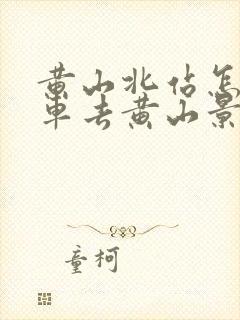 黄山北站怎
车去黄山景
童柯